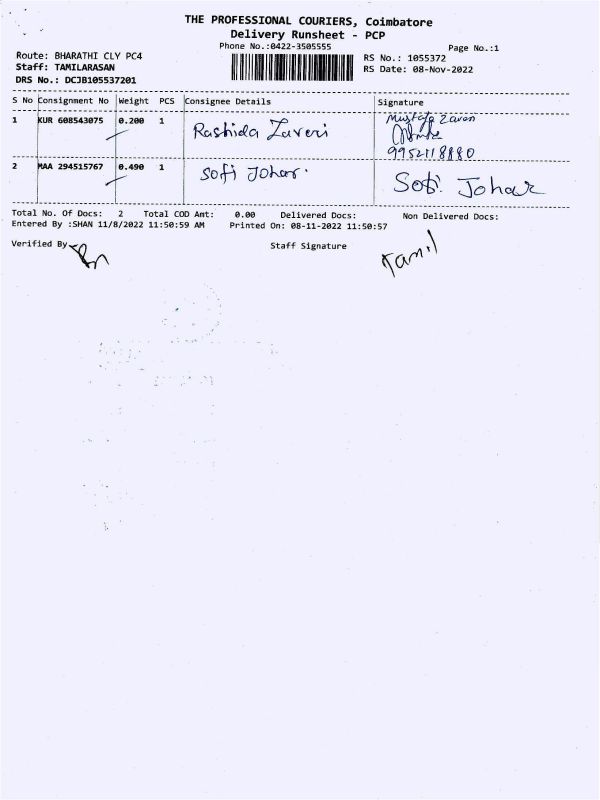 THE PROFESSIONAL COURIERS, Coimbatore
Delivery Runsheet - PCP
Phone No.:0422-3505555
Page No.:1
Route: BHARATHI CLY PC4
Staff: TAMILARASAN
DRS No.: DCJB105537201
RS No.: 1055372
RS Date: 08-Nov-2022
S No Consignment No Weight PCS Consignee Details Signature
1 KUR 608543075 0.200 1 Rashida Zaveri Mustafa Zaveri
9952118880
2 MAA 294515767 0.490 1 Sofi Johar. Sofi. Johar
Total No. Of Docs: 2 Total COD Amt: 0.00 Delivered Docs: Non Delivered Docs:
Entered By :SHAN 11/8/2022 11:50:59 AM Printed On: 08-11-2022 11:50:57
Verified By Staff Signature Tamil